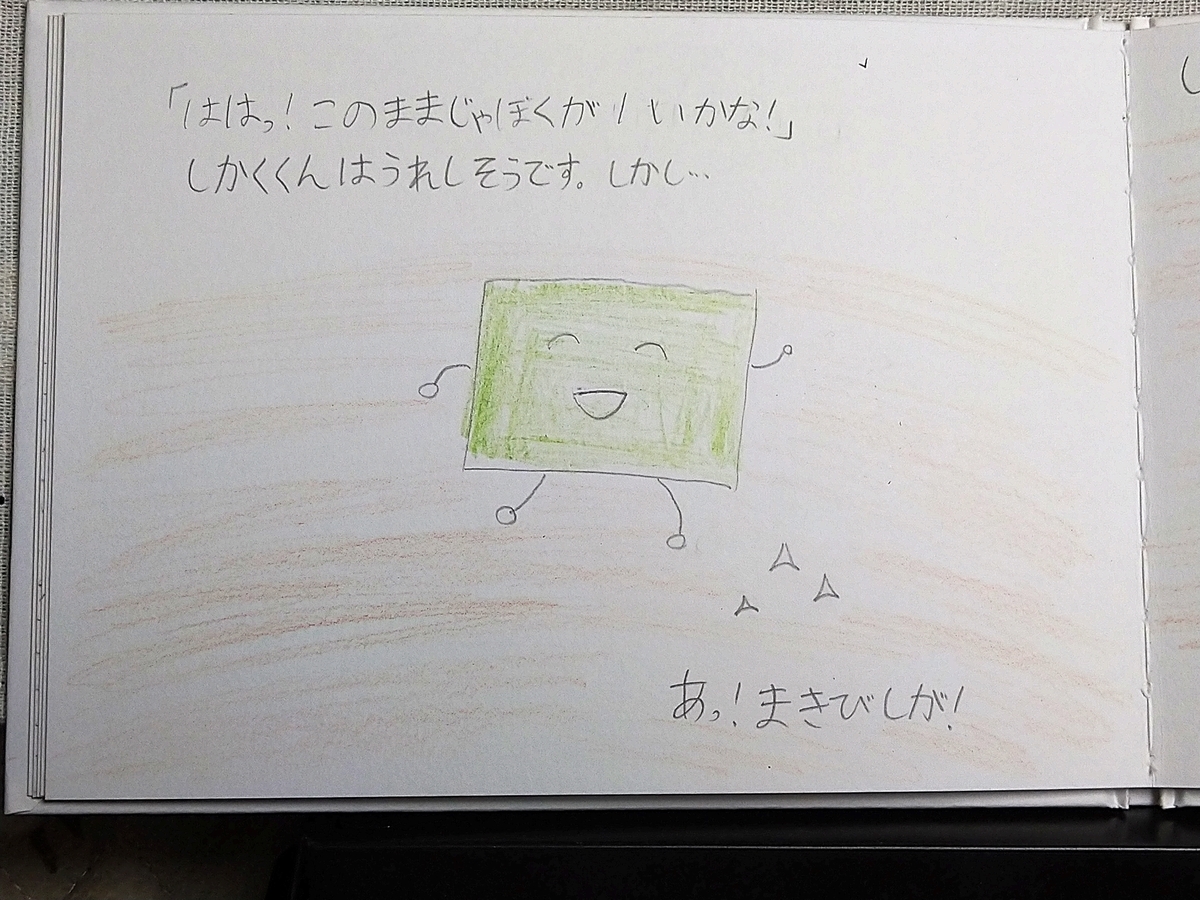 「ははっ!このままじゃぼくが1いかな!」
しかくくんはうれしそうです。しかし…
あっ!まきびしが!